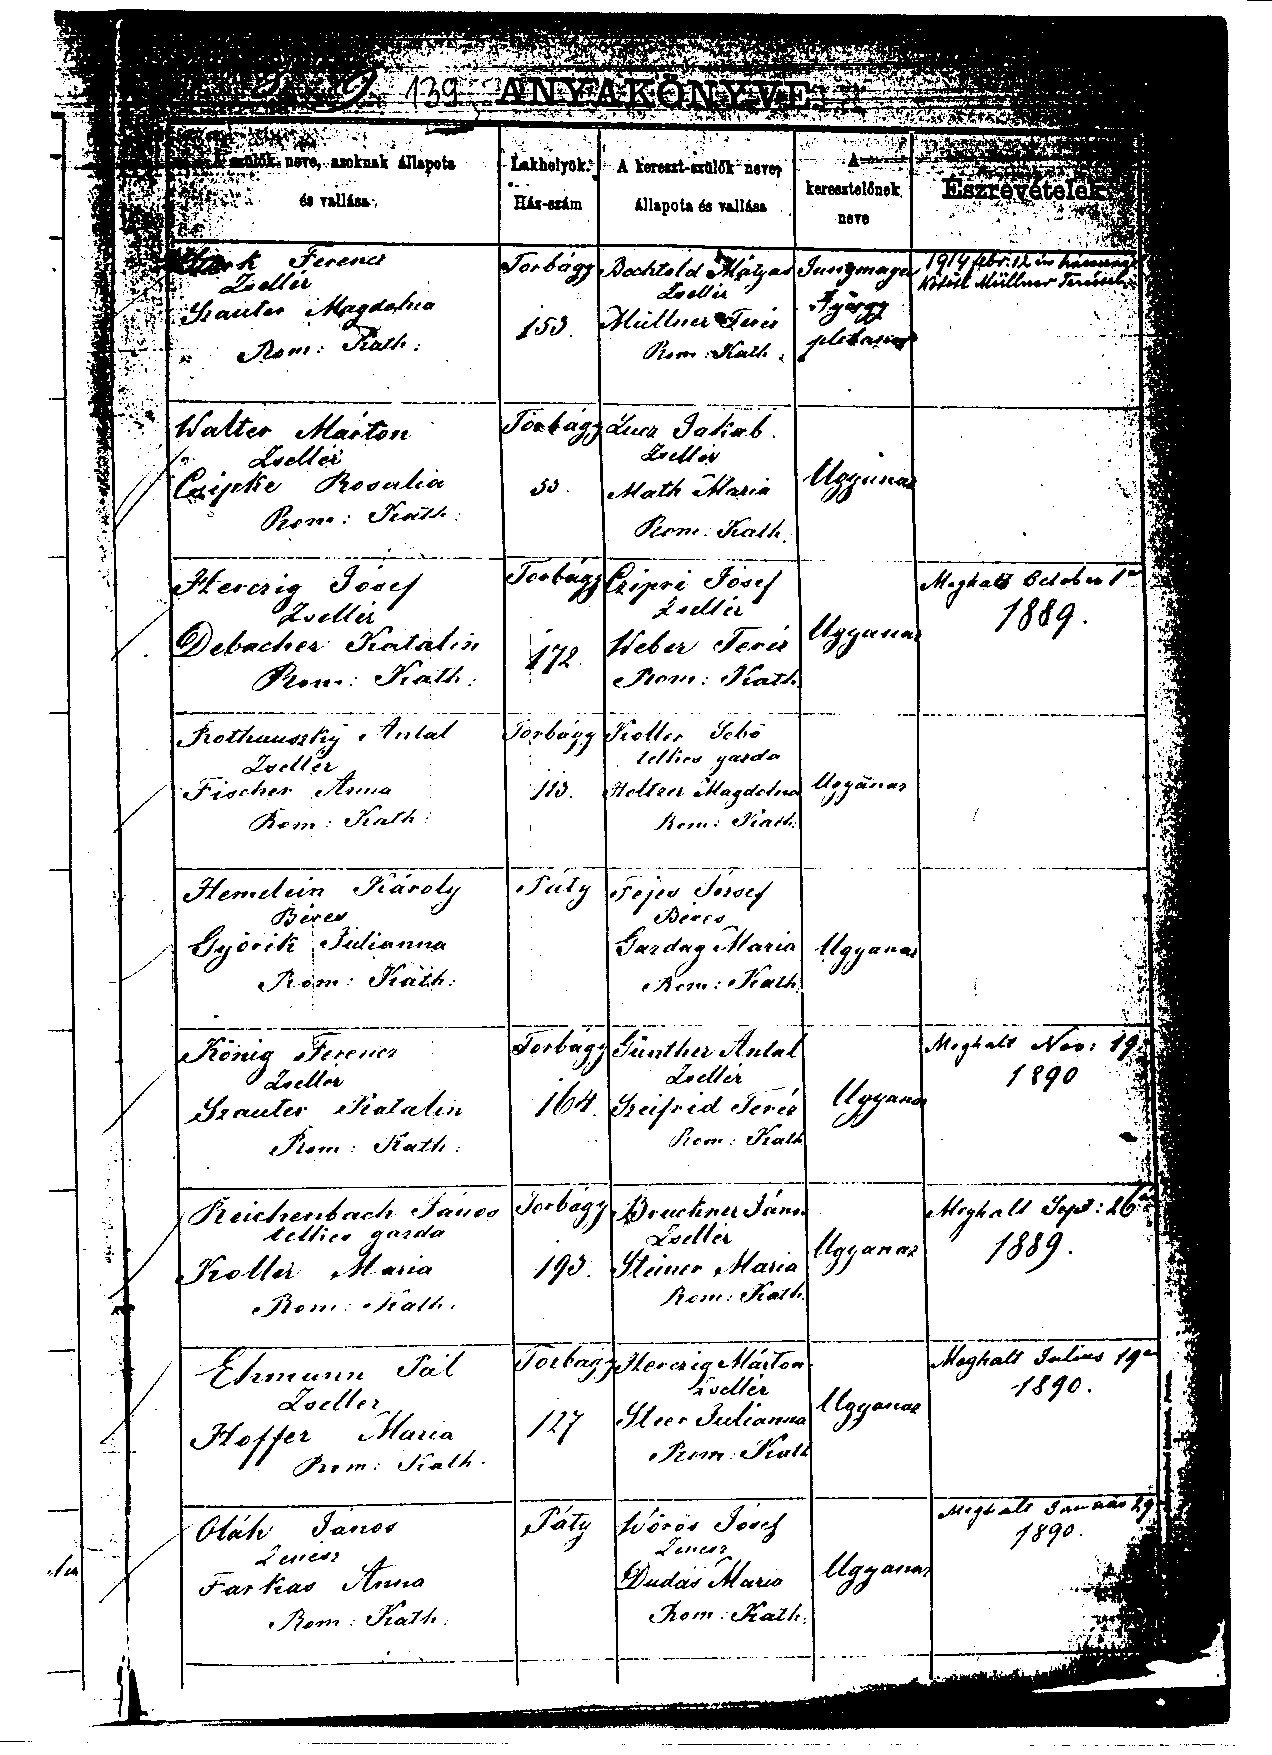 139 ANYAKÖNYVE
szülők neve, azoknak állapota
és vallása
Lakhelyök.
Ház-szám
A kereszt-szülők neve,
állapota és vallása
A
keresztelőnek
neve
Észrevételek
Ferencz
Zsellér
Szauter Magdolna
Rom: Kath:
Torbágy
153.
Bechtold Mátyás
Zsellér
Müllner Teréz
Rom: Kath.
Jungmayer
György
plebanos
1914 febr: 12 én házasságot
kötött Müllner Terézzel
Walter Márton
Zsellér
Czipke Rosalia
Rom: Kath:
Torbágy
53.
Lucz Jakab.
Zsellér
Math Maria
Rom: Kath.
Ugyanaz
Herczig Jósef
Zsellér
Debacher Katalin
Rom: Kath:
Torbágy
172.
Czipri Jósef
Zsellér
Weber Teréz
Rom: Kath.
Ugyanaz
Meghalt October 1én
1889.
Rothauszky Antal
Zsellér
Fischer Anna
Rom: Kath:
Torbágy
113.
Koller Sebő
telkes gazda
Holtzer Magdolna
Rom: Kath:
Ugyanaz
Hemelein Károly
Béres
Györik Julianna
Rom: Kath:
Páty
Fejes József
Béres
Gazdag Maria
Rom: Kath.
Ugyanaz
König Ferencz
Zsellér
Szauter Katalin
Rom: Kath:
Torbágy
164.
Günther Antal
Zsellér
Szeifrid Teréz
Rom: Kath
Ugyanaz
Meghalt Nov: 19én
1890
Reichenbach János
telkes gazda
Koller Maria
Rom: Kath.
Torbágy
193.
Bruckner János
Zsellér
Steiner Maria
Rom: Kath.
Ugyanaz
Meghalt Sept: 26án
1889.
Ehmann Pál
Zsellér
Hoffer Maria
Rom: Kath.
Torbágy
127
Herczig Márton
Zsellér
Steer Julianna
Rom: Kath
Ugyanaz
Meghalt Julius 19én
1890.
Oláh János
Zenész
Farkas Anna
Rom: Kath.
Páty
Vörös Jósef
Zenész
Dudás Maria
Rom: Kath.
Ugyanaz
Meghalt Január 29
1890.